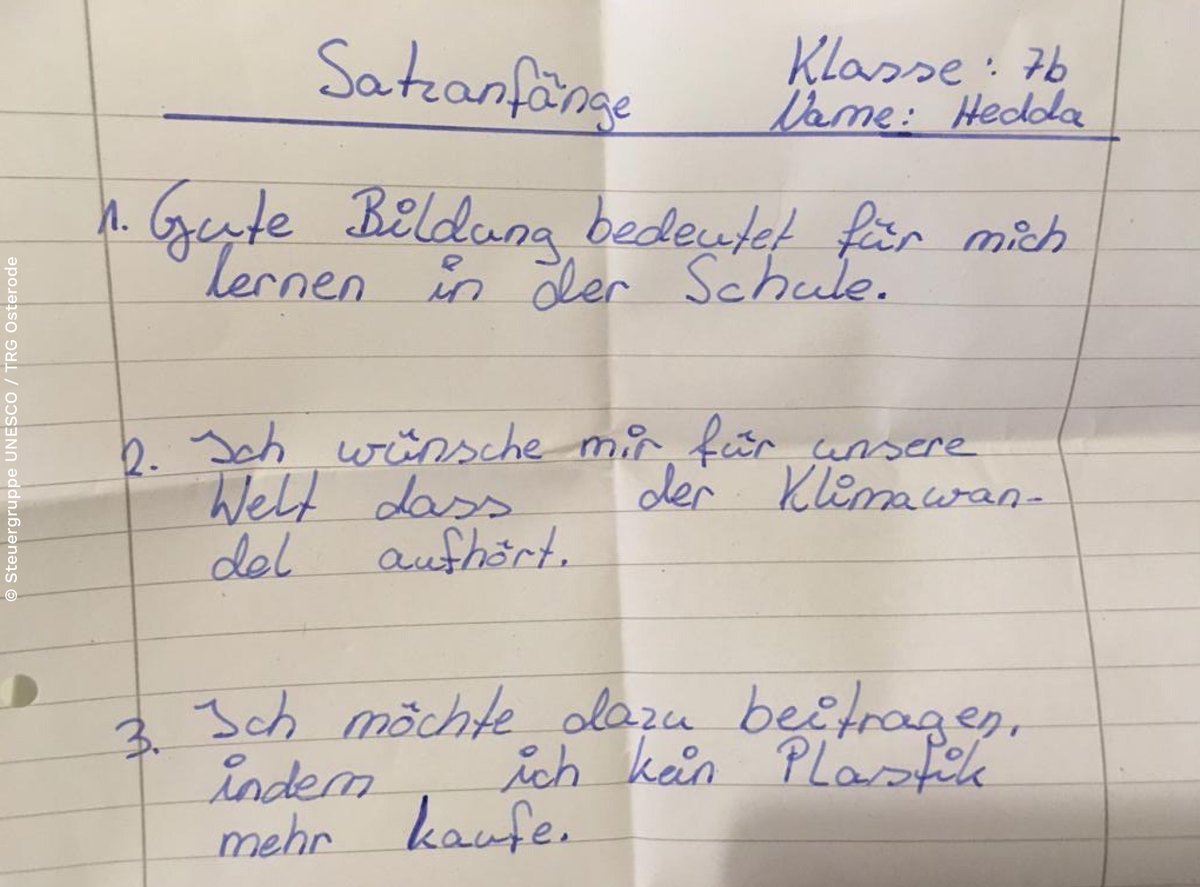 Satzanfänge
Klasse: 7b
Name: Hedda
1. Gute Bildung bedeutet für mich
lernen in der Schule.
2. Ich wünsche mir für unsere
Welt dass der Klimawan-
del aufhört.
3. Ich möchte dazu beitragen,
indem ich kein Plastik
mehr kaufe.
© Steuergruppe UNESCO / TRG Osterode